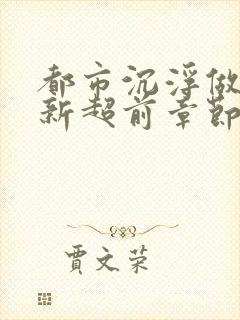 都市沉浮做
新超前章節
賈文荣